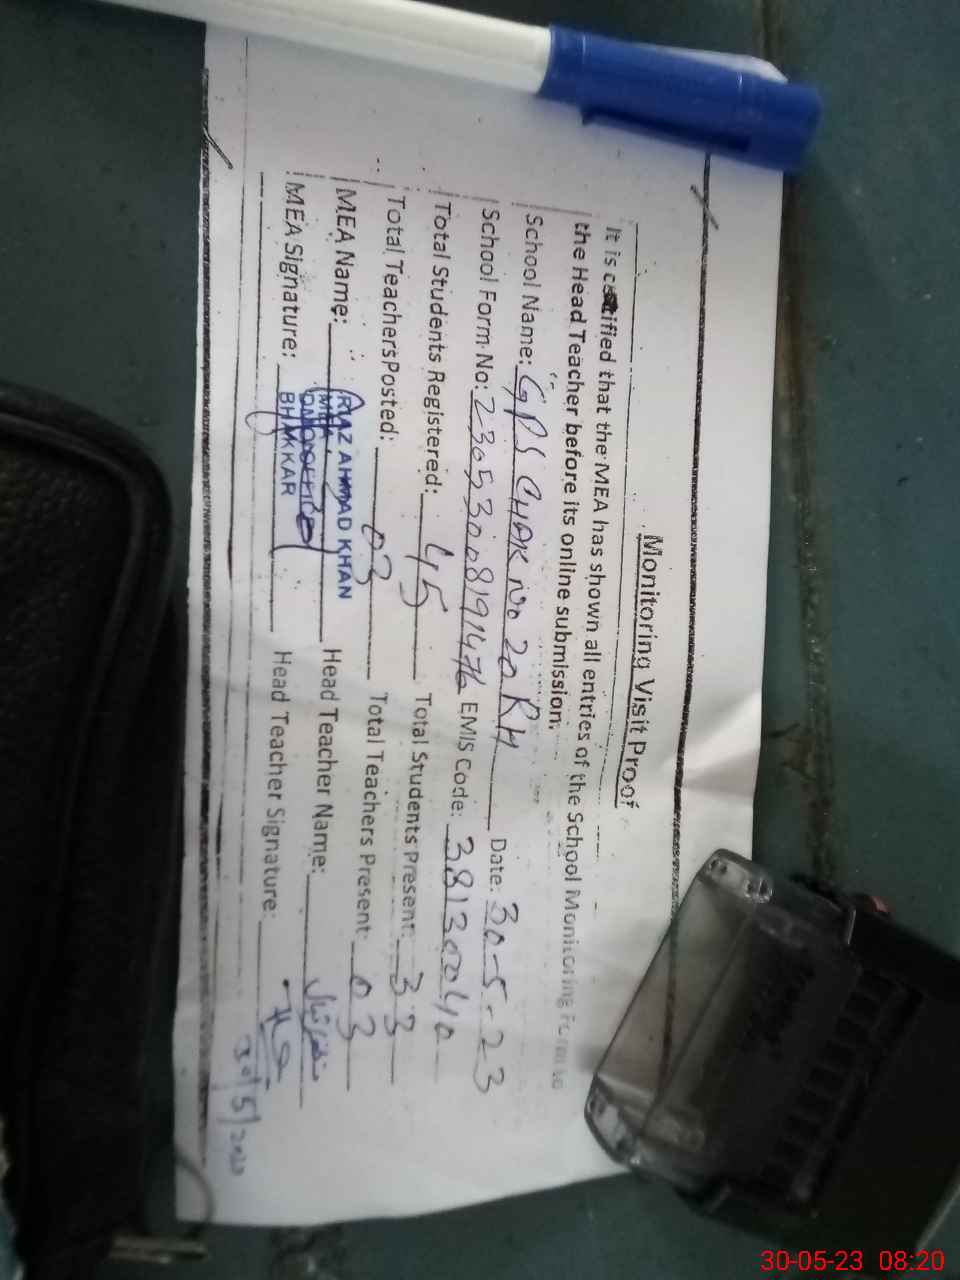 Monitoring Visit Proof
It is certified that the MEA has shown all entries of the School Monitoring Form to
the Head Teacher before its online submission.
School Name: GPS CHAK No 20 RH Date: 30-5-23
School Form No: EMIS Code: 38130040
Total Students Registered: 45 Total Students Present: 33
Total Teachers Posted: 03 Total Teachers Present: 03
MEA Name: RIAZ AHMAD KHAN Head Teacher Name:
MEA,
DMO OFFICE
MEA Signature: BHAKKAR Head Teacher Signature:
30/5/2023
30-05-23 08:20